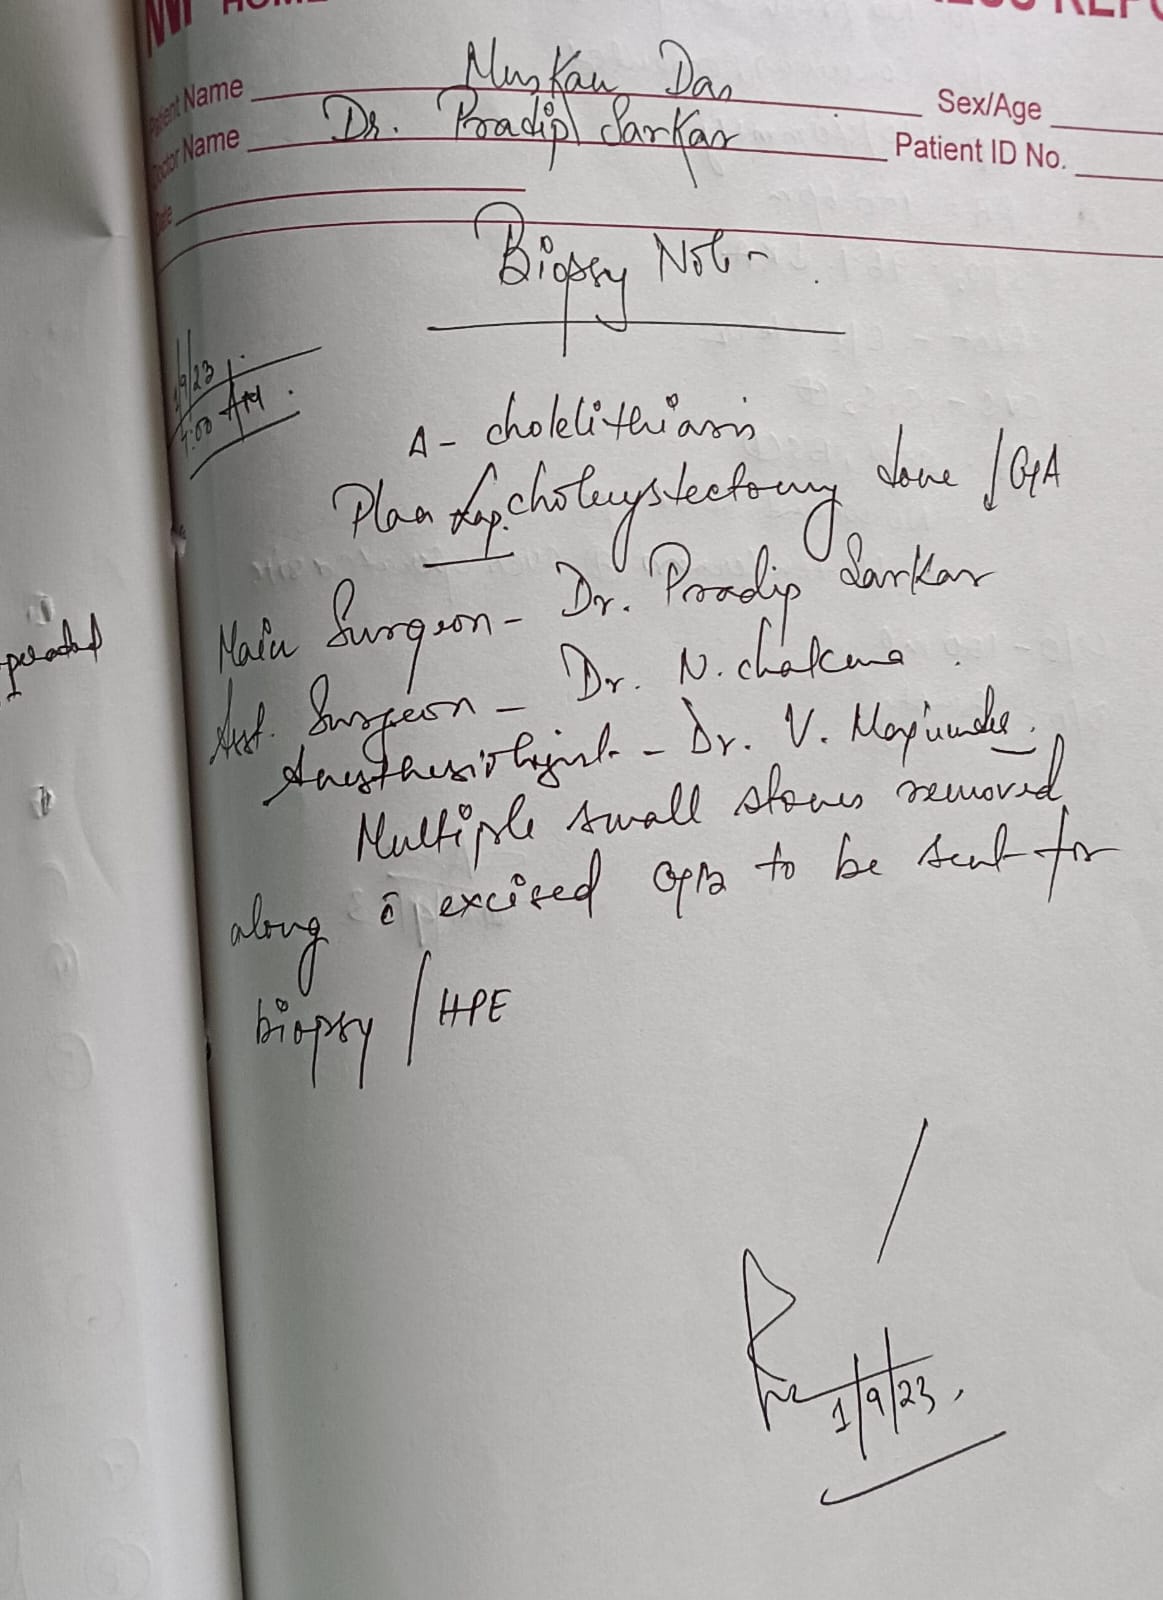 Patient Name Muskan Das Sex/Age
Doctor Name Dr. Pradip Sarkar Patient ID No.
Date
Biopsy Note
1/9/23
:00 AM
Δ - cholelithiasis
Plan Lap. cholecystectomy done ↓ GA
Main Surgeon - Dr. Pradip Sarkar
Asst. Surgeon - Dr. N. chakma
Anesthesiologist - Dr. V. Mazumder.
Multiple small stones removed
along c̄ excised GB to be sent for
biopsy / HPE
1/9/23